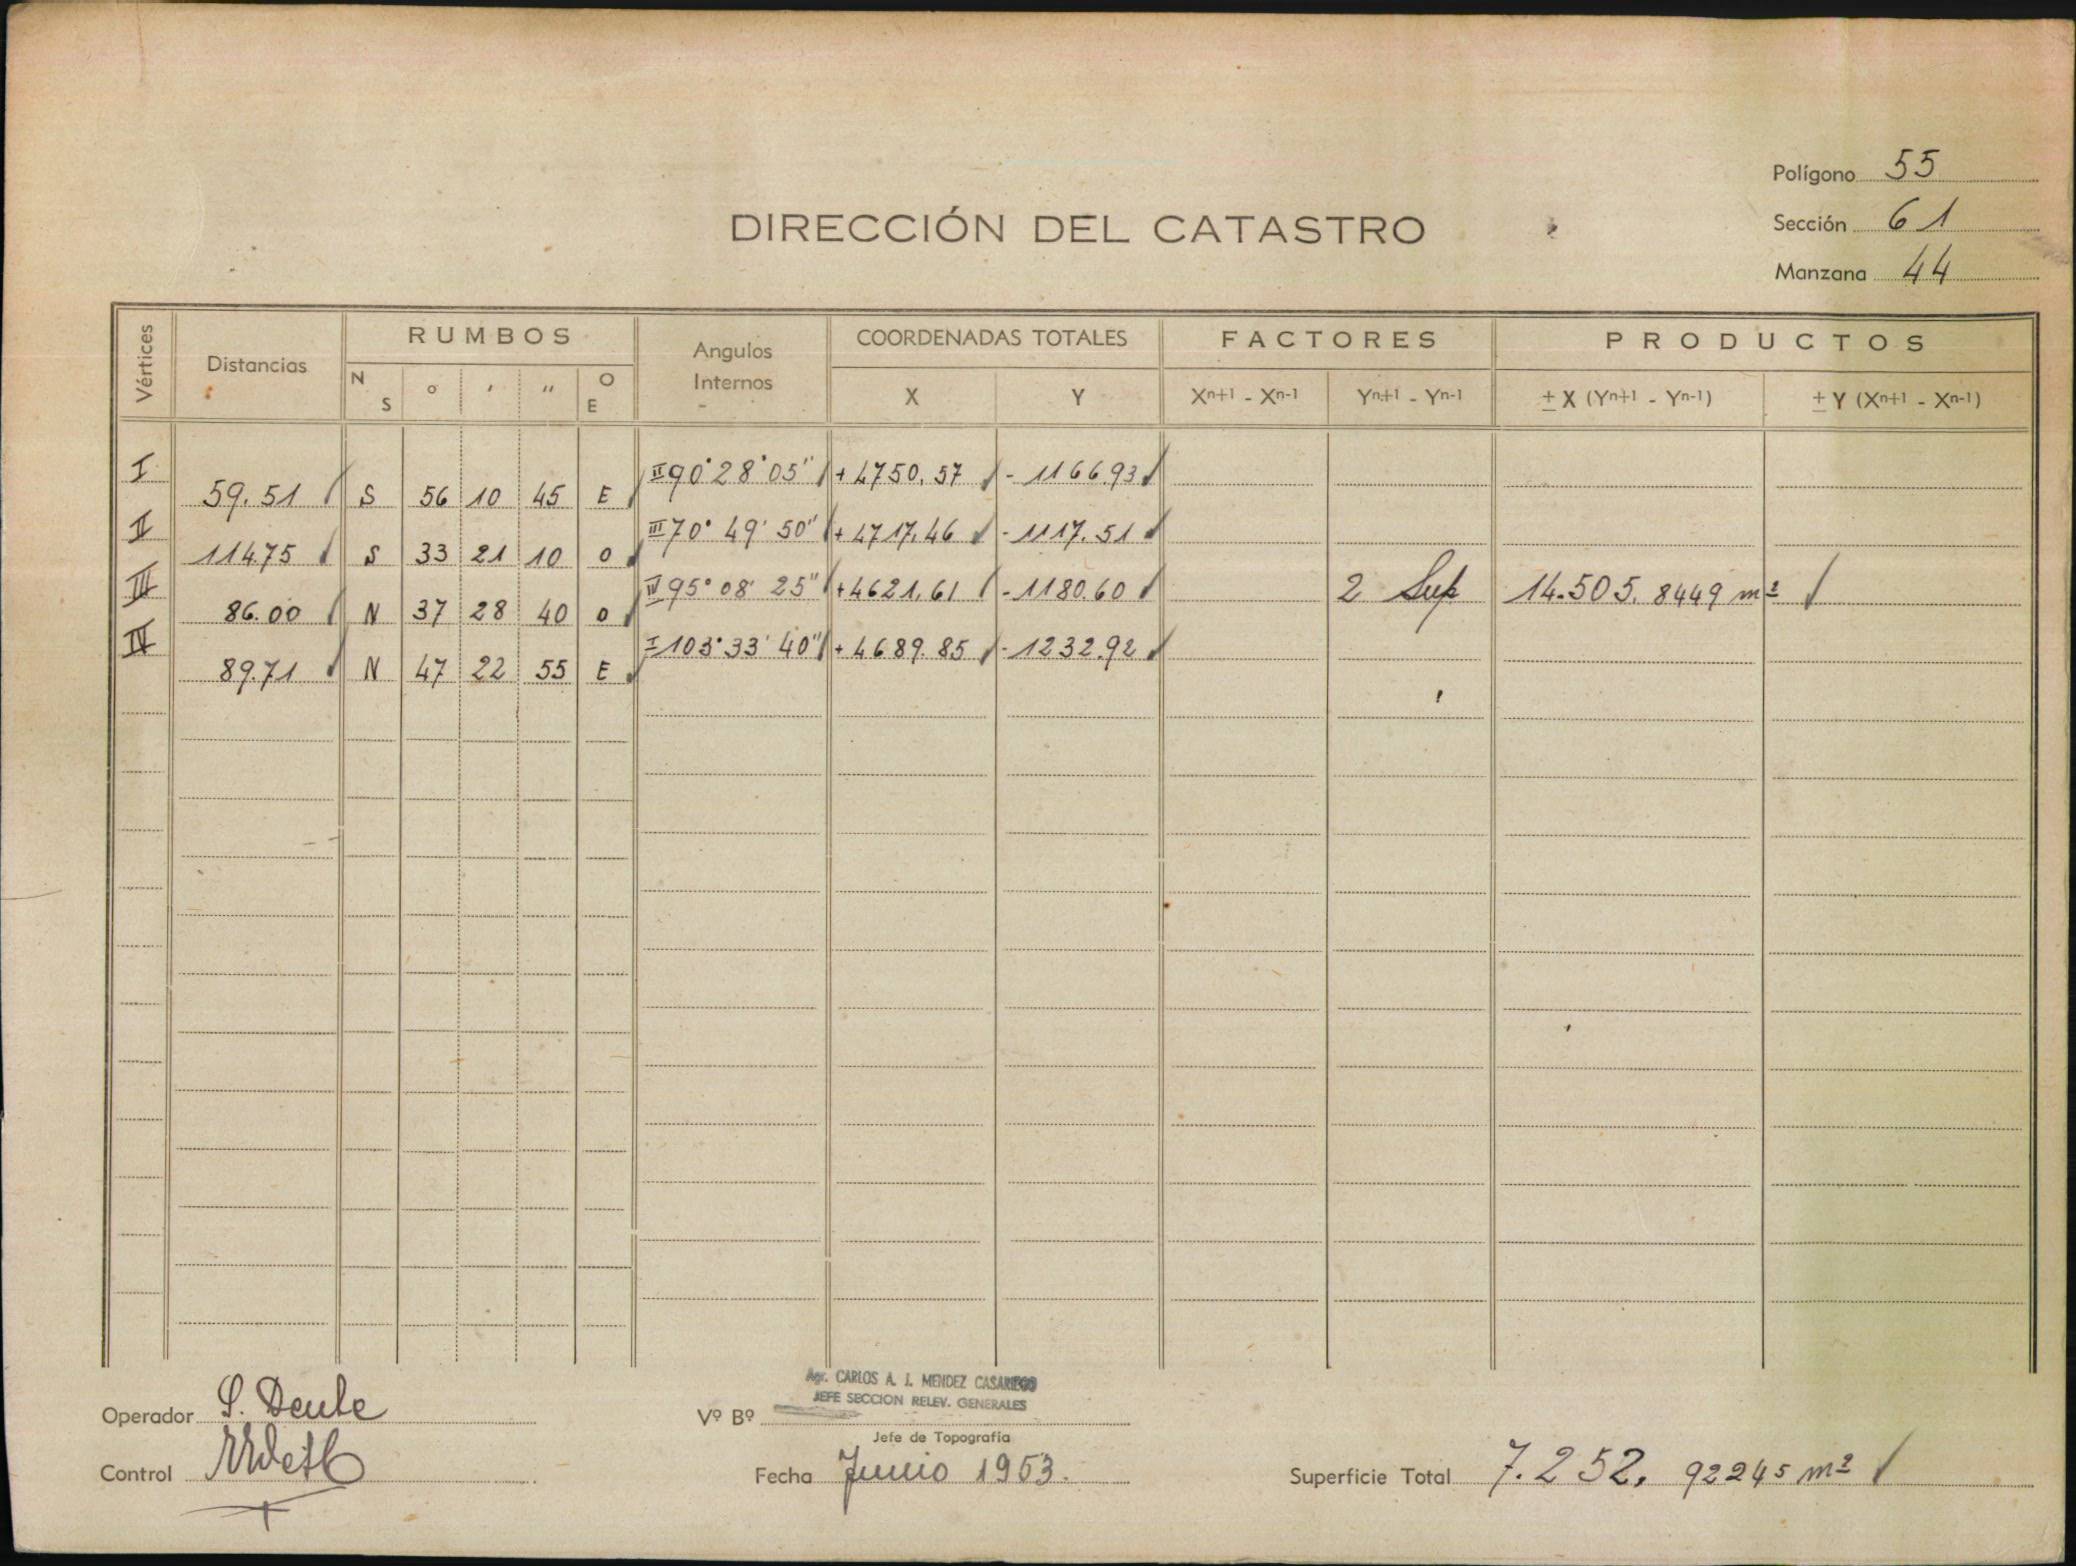 Polígono 55
DIRECCIÓN DEL CATASTRO
Sección 61
Manzana 44
Vértices Distancias RUMBOS Angulos Internos COORDENADAS TOTALES FACTORES PRODUCTOS
N S ° ′ ″ O E X Y Xn+1 - Xn-1 Yn+1 - Yn-1 ± X (Yn+1 - Yn-1) ± Y (Xn+1 - Xn-1)
I II 90° 28' 05" + 4750.57 - 1166.93
59.51 S 56 10 45 E
II III 70° 49' 50" + 4717.46 - 1117.51
114.75 S 33 21 10 O
III IV 95° 08' 25" + 4621.61 - 1180.60 2 Sup 14.505.8449 m²
86.00 N 37 28 40 O
IV I 103° 33' 40" + 4689.85 - 1232.92
89.71 N 47 22 55 E
Agr. CARLOS A. J. MENDEZ CASARIEGO
JEFE SECCION RELEV. GENERALES
Operador
Vº Bº
Jefe de Topografía
Control
Fecha Junio 1953.
Superficie Total 7.252,92245 m²